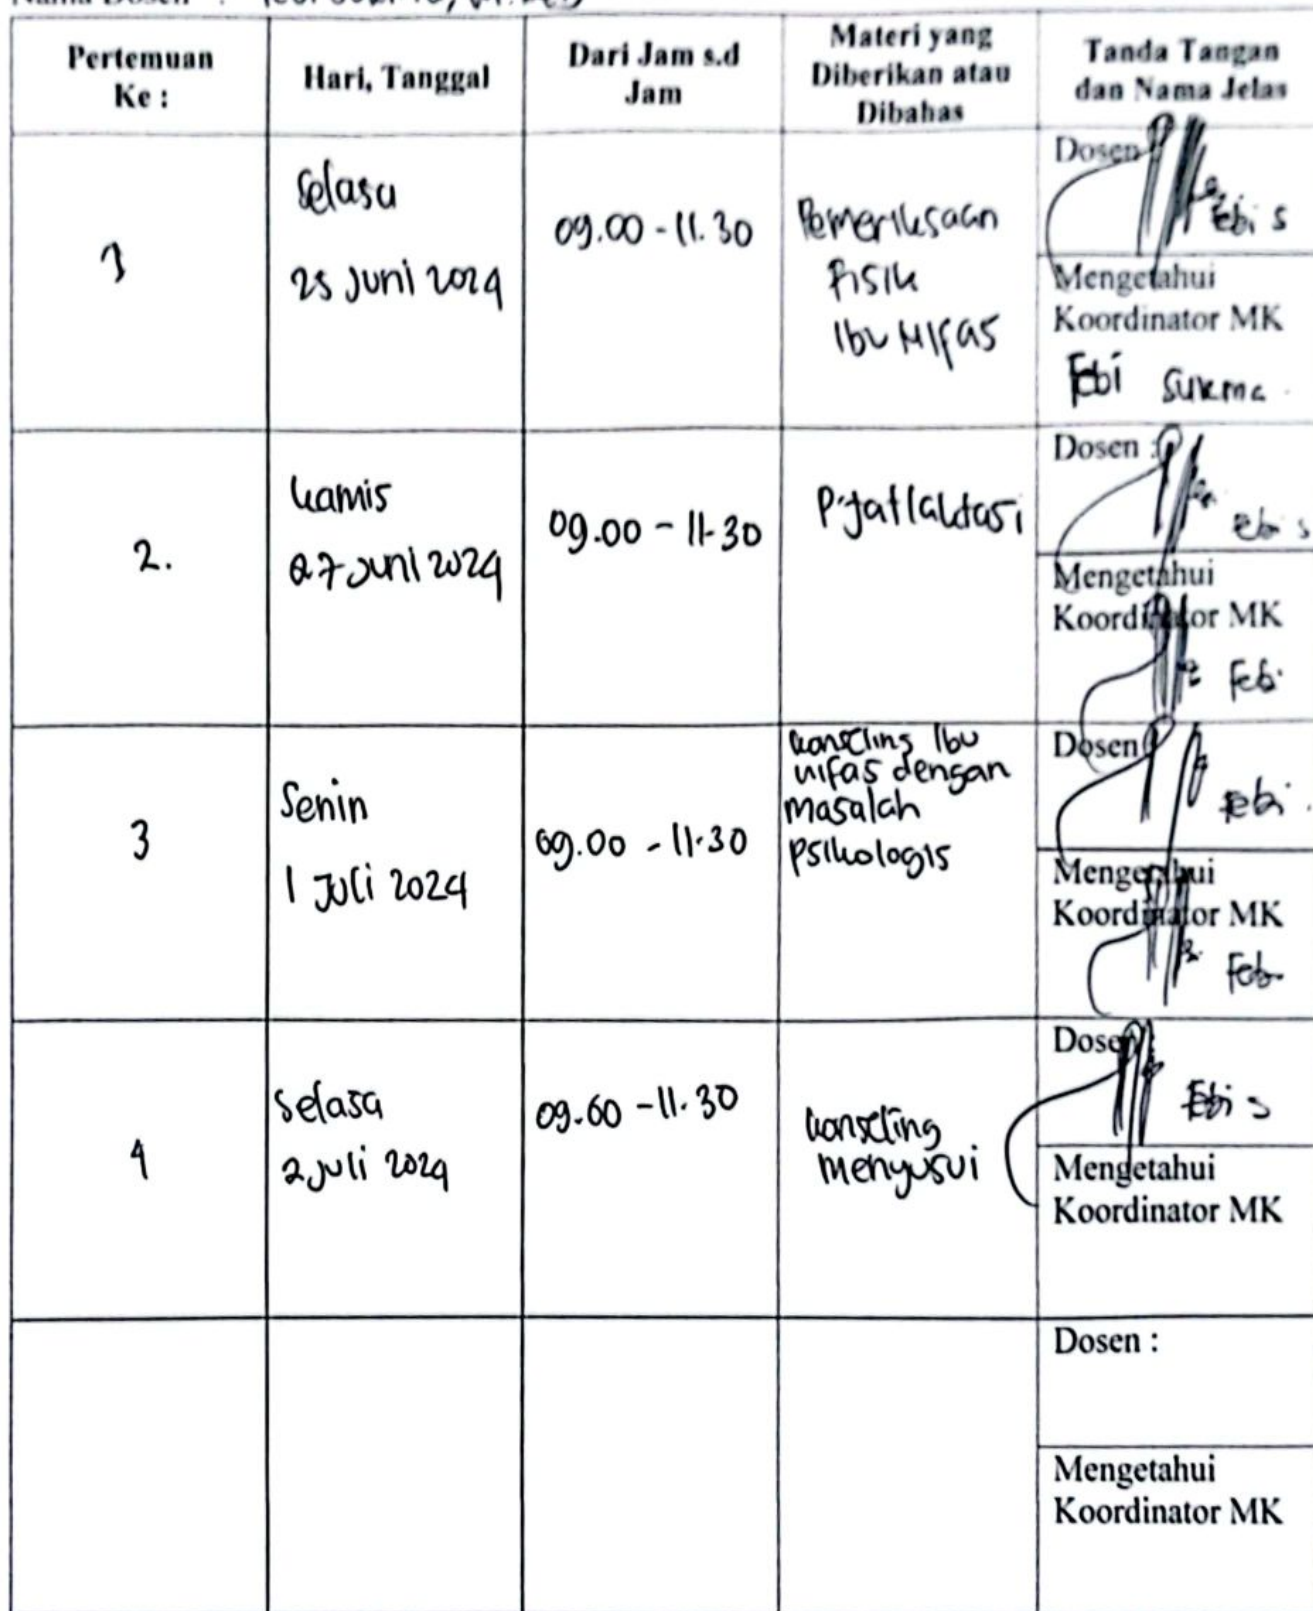 Pertemuan
Ke :
Hari, Tanggal
Dari Jam s.d
Jam
Materi yang
Diberikan atau
Dibahas
Tanda Tangan
dan Nama Jelas
1
Selasa
25 Juni 2024
09.00 - 11.30
Pemeriksaan
Fisik
Ibu Nifas
Dosen
Febi S
Mengetahui
Koordinator MK
Febi Sukma
2.
Kamis
27 Juni 2024
09.00 - 11.30
Pijat laktasi
Dosen :
Febi S
Mengetahui
Koordinator MK
Febi
3
Senin
1 Juli 2024
09.00 - 11.30
konseling Ibu
nifas dengan
masalah
psikologis
Dosen
Febi
Mengetahui
Koordinator MK
Febi
4
Selasa
2 Juli 2024
09.00 - 11.30
konseling
menyusui
Dosen
Febi S
Mengetahui
Koordinator MK
Dosen :
Mengetahui
Koordinator MK